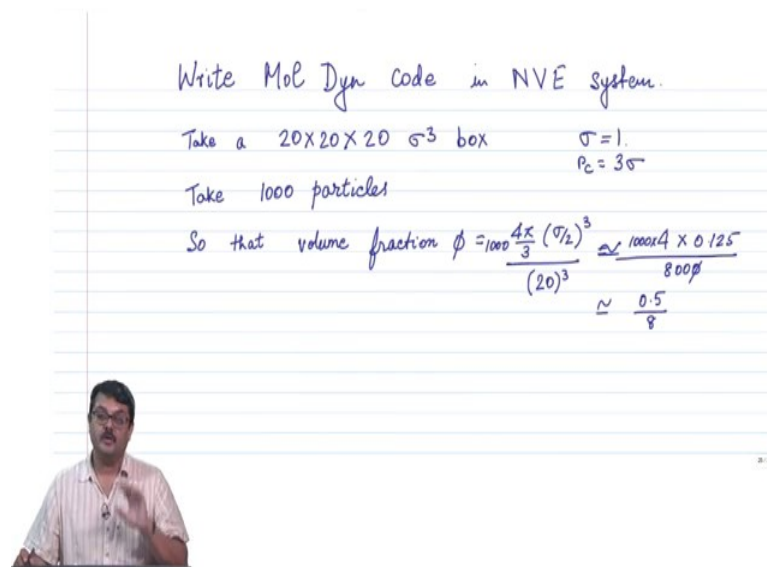 Write Mol Dyn code in NVE system.
Take a 20×20×20 σ³ box σ = 1.
r_c = 3σ
Take 1000 particles
So that volume fraction ϕ = 1000 4π/3 (σ/2)³ / (20)³ ≃ 1000×4 × 0.125 / 8000
≃ 0.5/8